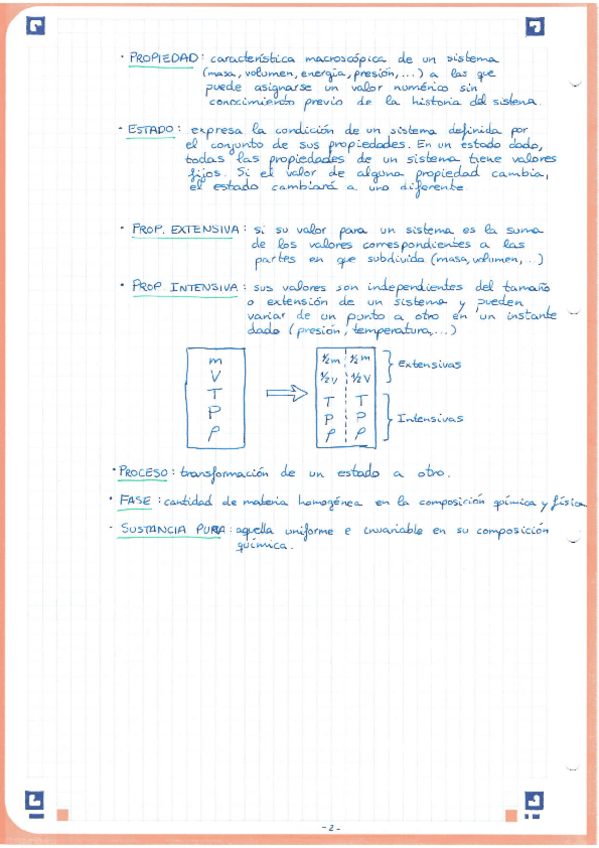 · PROPIEDAD: característica macroscópica de un sistema
(masa, volumen, energía, presión, ...) a las que
puede asignarse un valor numérico sin
conocimiento previo de la historia del sistema.
· ESTADO: expresa la condición de un sistema definida por
el conjunto de sus propiedades. En un estado dado,
todas las propiedades de un sistema tiene valores
fijos. Si el valor de alguna propiedad cambia,
el estado cambiará a uno diferente.
· PROP. EXTENSIVA: si su valor para un sistema es la suma
de los valores correspondientes a las
partes en que subdivida (masa, volumen, ...)
· PROP INTENSIVA: sus valores son independientes del tamaño
o extensión de un sistema y pueden
variar de un punto a otro en un instante
dado (presión, temperatura, ...)
m ½m ½m
V ½V ½V Extensivas
T T T
P P P Intensivas
ρ ρ ρ
· PROCESO: transformación de un estado a otro.
· FASE: cantidad de materia homogénea en la composición química y física
· SUSTANCIA PURA: aquella uniforme e invariable en su composición
química.
-2-